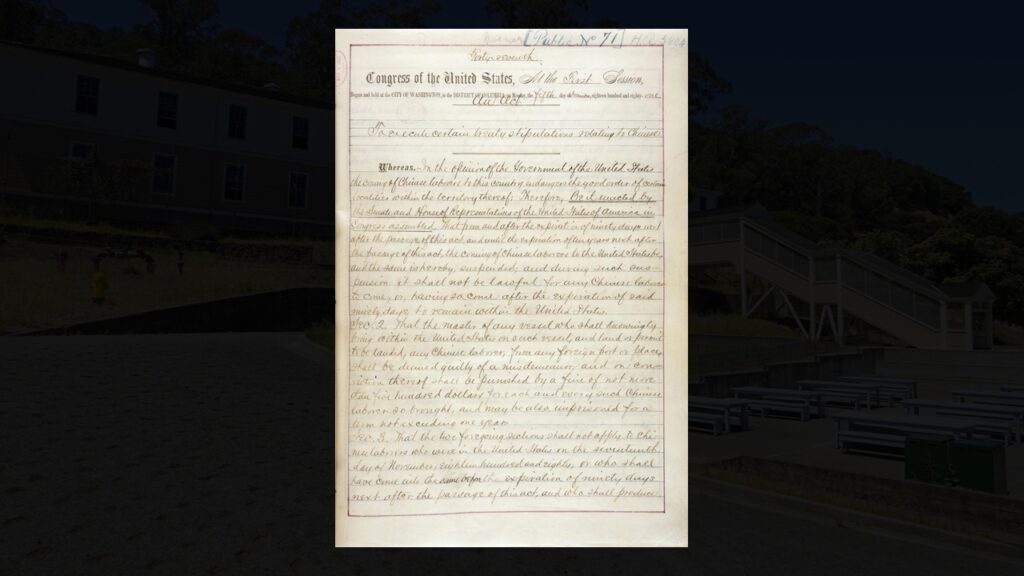 [Public No 71] H.R. 5804
Forty-seventh
Congress of the United States, At the First Session,
Begun and held at the CITY OF WASHINGTON, in the DISTRICT OF COLUMBIA, on Monday, the fifth day of December, eighteen hundred and eighty-one
An Act
To execute certain treaty stipulations relating to Chinese.
Whereas, In the opinion of the Government of the United States
the coming of Chinese laborers to this country endangers the good order of certain
localities within the territory thereof; Therefore, Be it enacted by
the Senate and House of Representatives of the United States of America in
Congress assembled, That from and after the expiration of ninety days next
after the passage of this act, and until the expiration of ten years next after
the passage of this act, the coming of Chinese laborers to the United States be,
and the same is hereby, suspended; and during such sus-
pension it shall not be lawful for any Chinese laborer
to come, or, having so come after the expiration of said
ninety days, to remain within the United States.
Sec. 2. That the master of any vessel who shall knowingly
bring within the United States on such vessel, and land or permit
to be landed, any Chinese laborer, from any foreign port or place,
shall be deemed guilty of a misdemeanor, and on con-
viction thereof shall be punished by a fine of not more
than five hundred dollars for each and every such Chinese
laborer so brought, and may be also imprisoned for a
term not exceeding one year.
Sec. 3. That the two foregoing sections shall not apply to Chi-
nese laborers who were in the United States on the seventeenth
day of November, eighteen hundred and eighty, or who shall
have come into the same before the expiration of ninety days
next after the passage of this act, and who shall produce